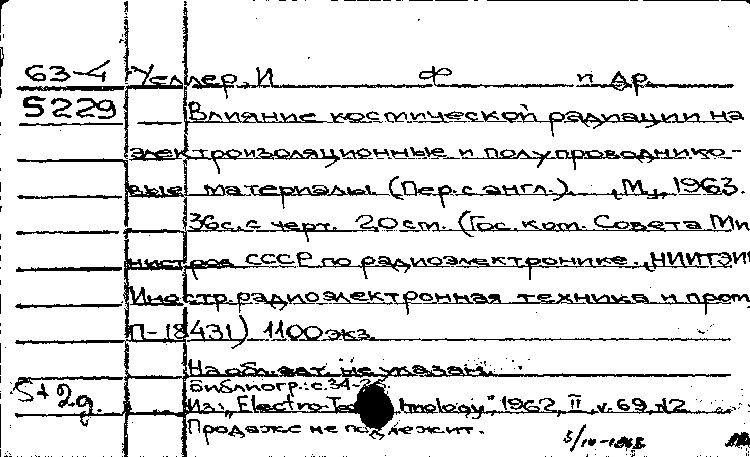 63-4 Уеллер, И Ф и др.
5229 Влияние космической радиации на
электроизоляционные и полупроводнико-
вые материалы. (Пер. с англ.). М., 1963.
36с. с черт. 20см. (Гос. ком. Совета Ми
нистров СССР по радиоэлектронике. "НИИТЭИ
Иностр. радиоэлектронная техника и прот
П-18431) 1100экз.
На обл. авт. не указан.
Библиогр.: с. 34-
5+2д. Из: "Electro-Te hnology", 1962, II, v. 69, N2
Продаже не подлежит.